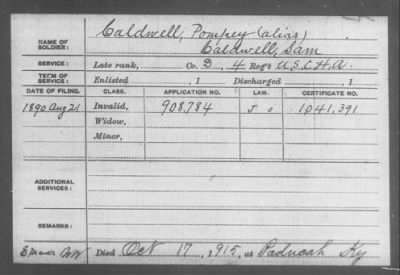 Caldwell, Pompey (alias)
NAME OF SOLDIER: Caldwell, Sam
SERVICE: Late rank, Co. D, 4 Reg't U.S.C.H.A.
TERM OF SERVICE: Enlisted , 1 Discharged , 1
DATE OF FILING. CLASS. APPLICATION NO. LAW. CERTIFICATE NO.
1890 Aug 21 Invalid, 908,784 1,041,391
Widow,
Minor,
ADDITIONAL SERVICES:
REMARKS:
Died Oct 17, 1915, at Paducah Ky